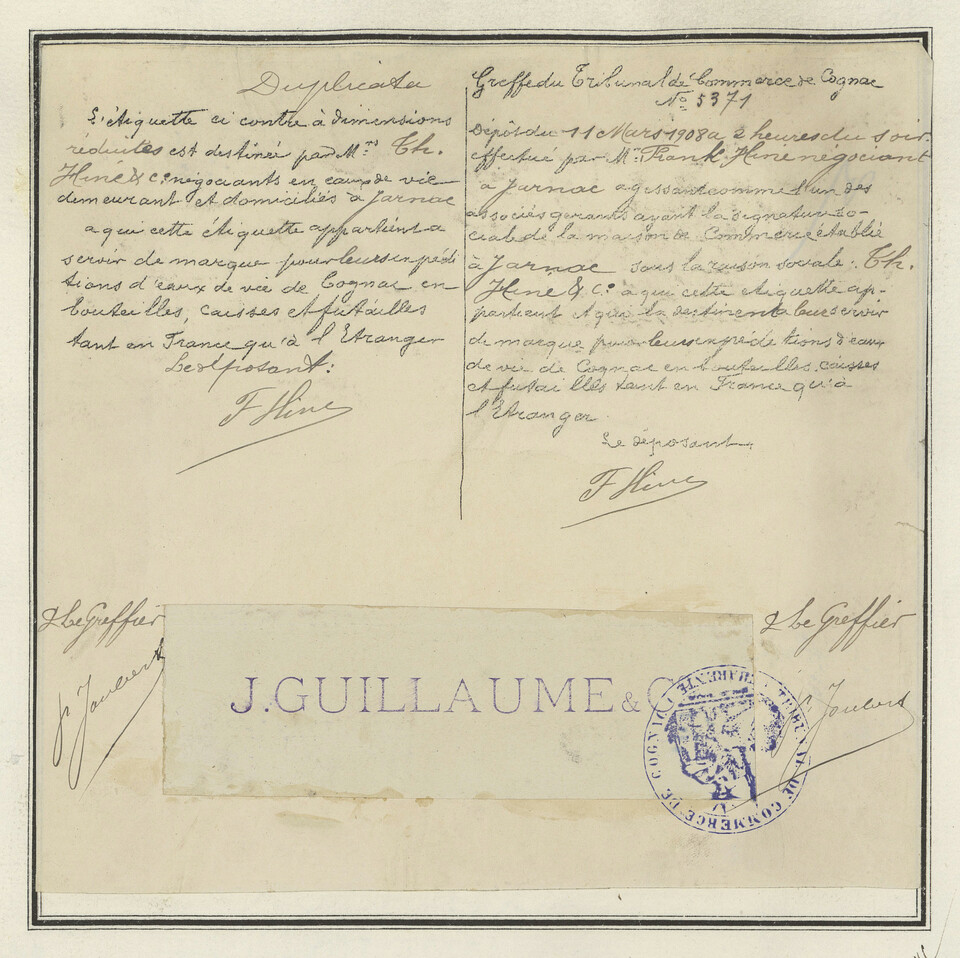 Duplicata
L'étiquette ci contre à dimensions
réduites est destinée par Mrs Th.
Hine & Co négociants en eaux de vie
demeurant et domiciliés à Jarnac
a qui cette étiquette appartient a
servir de marque pour leurs expédi
tions d'eaux de vie de Cognac en
bouteilles, caisses et futailles
tant en France qu'à l'Etranger
Le déposant:
F Hine
Greffe du Tribunal de Commerce de Cognac
No 5371
Dépôt du 11 Mars 1908 a 2 heures du soir.
effectué par Mr Frank Hine négociant
à Jarnac agissant comme l'un des
associés gerants ayant la signature so-
ciale de la maison de Commerce établie
à Jarnac sous la raison sociale: Th.
Hine & Co a qui cette etiquette ap-
partient et qui la destinent a leur servir
de marque pour leurs expéditions d'eaux
de vie de Cognac en bouteilles, caisses
et futailles tant en France qu'à
l'Etranger.
Le déposant.
F Hine
Le Greffier
Joubert
Le Greffier
Joubert
J. GUILLAUME & C
TRIBUNAL DE COMMERCE DE COGNAC
CHARENTE